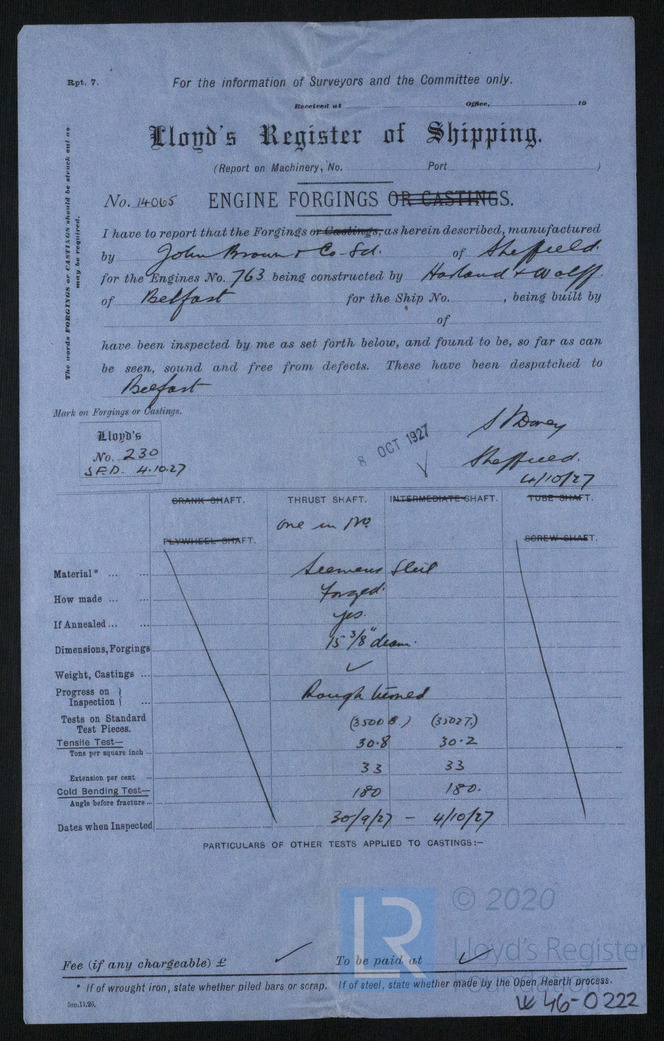 Rpt. 7.
For the information of Surveyors and the Committee only.
Received at Office, 19
Lloyd's Register of Shipping.
(Report on Machinery, No. Port )
The words FORGINGS or CASTINGS should be struck out as may be required.
No. 14065 ENGINE FORGINGS OR CASTINGS.
I have to report that the Forgings or Castings, as herein described, manufactured
by John Brown & Co Ld. of Sheffield.
for the Engines No. 763 being constructed by Harland & Wolff.
of Belfast for the Ship No. , being built by
of
have been inspected by me as set forth below, and found to be, so far as can
be seen, sound and free from defects. These have been despatched to
Belfast
Mark on Forgings or Castings.
Lloyd's
No. 230
4.10.27
8 OCT 1927
Sheffield.
4/10/27
CRANK SHAFT. THRUST SHAFT. INTERMEDIATE SHAFT. TUBE SHAFT.
one in No.
FLYWHEEL SHAFT. SCREW SHAFT.
Material* ... ... Siemens Steel
How made ... ... Forged.
If Annealed ... ... yes.
Dimensions, Forgings 15 3/8" diam.
Weight, Castings ... ✓
Progress on Inspection } ... Rough turned
Tests on Standard Test Pieces. (3500 B) (3502 T.)
Tensile Test—
Tons per square inch — 30.8 30.2
Extension per cent 33 33
Cold Bending Test—
Angle before fracture ... 180 180.
Dates when Inspected 30/9/27 - 4/10/27
PARTICULARS OF OTHER TESTS APPLIED TO CASTINGS:—
LR
© 2020
Lloyd's Register
Foundation
Fee (if any chargeable) £ ✓ To be paid at ✓
* If of wrought iron, state whether piled bars or scrap. If of steel, state whether made by the Open Hearth process.
5m.11.26.
W46-0222